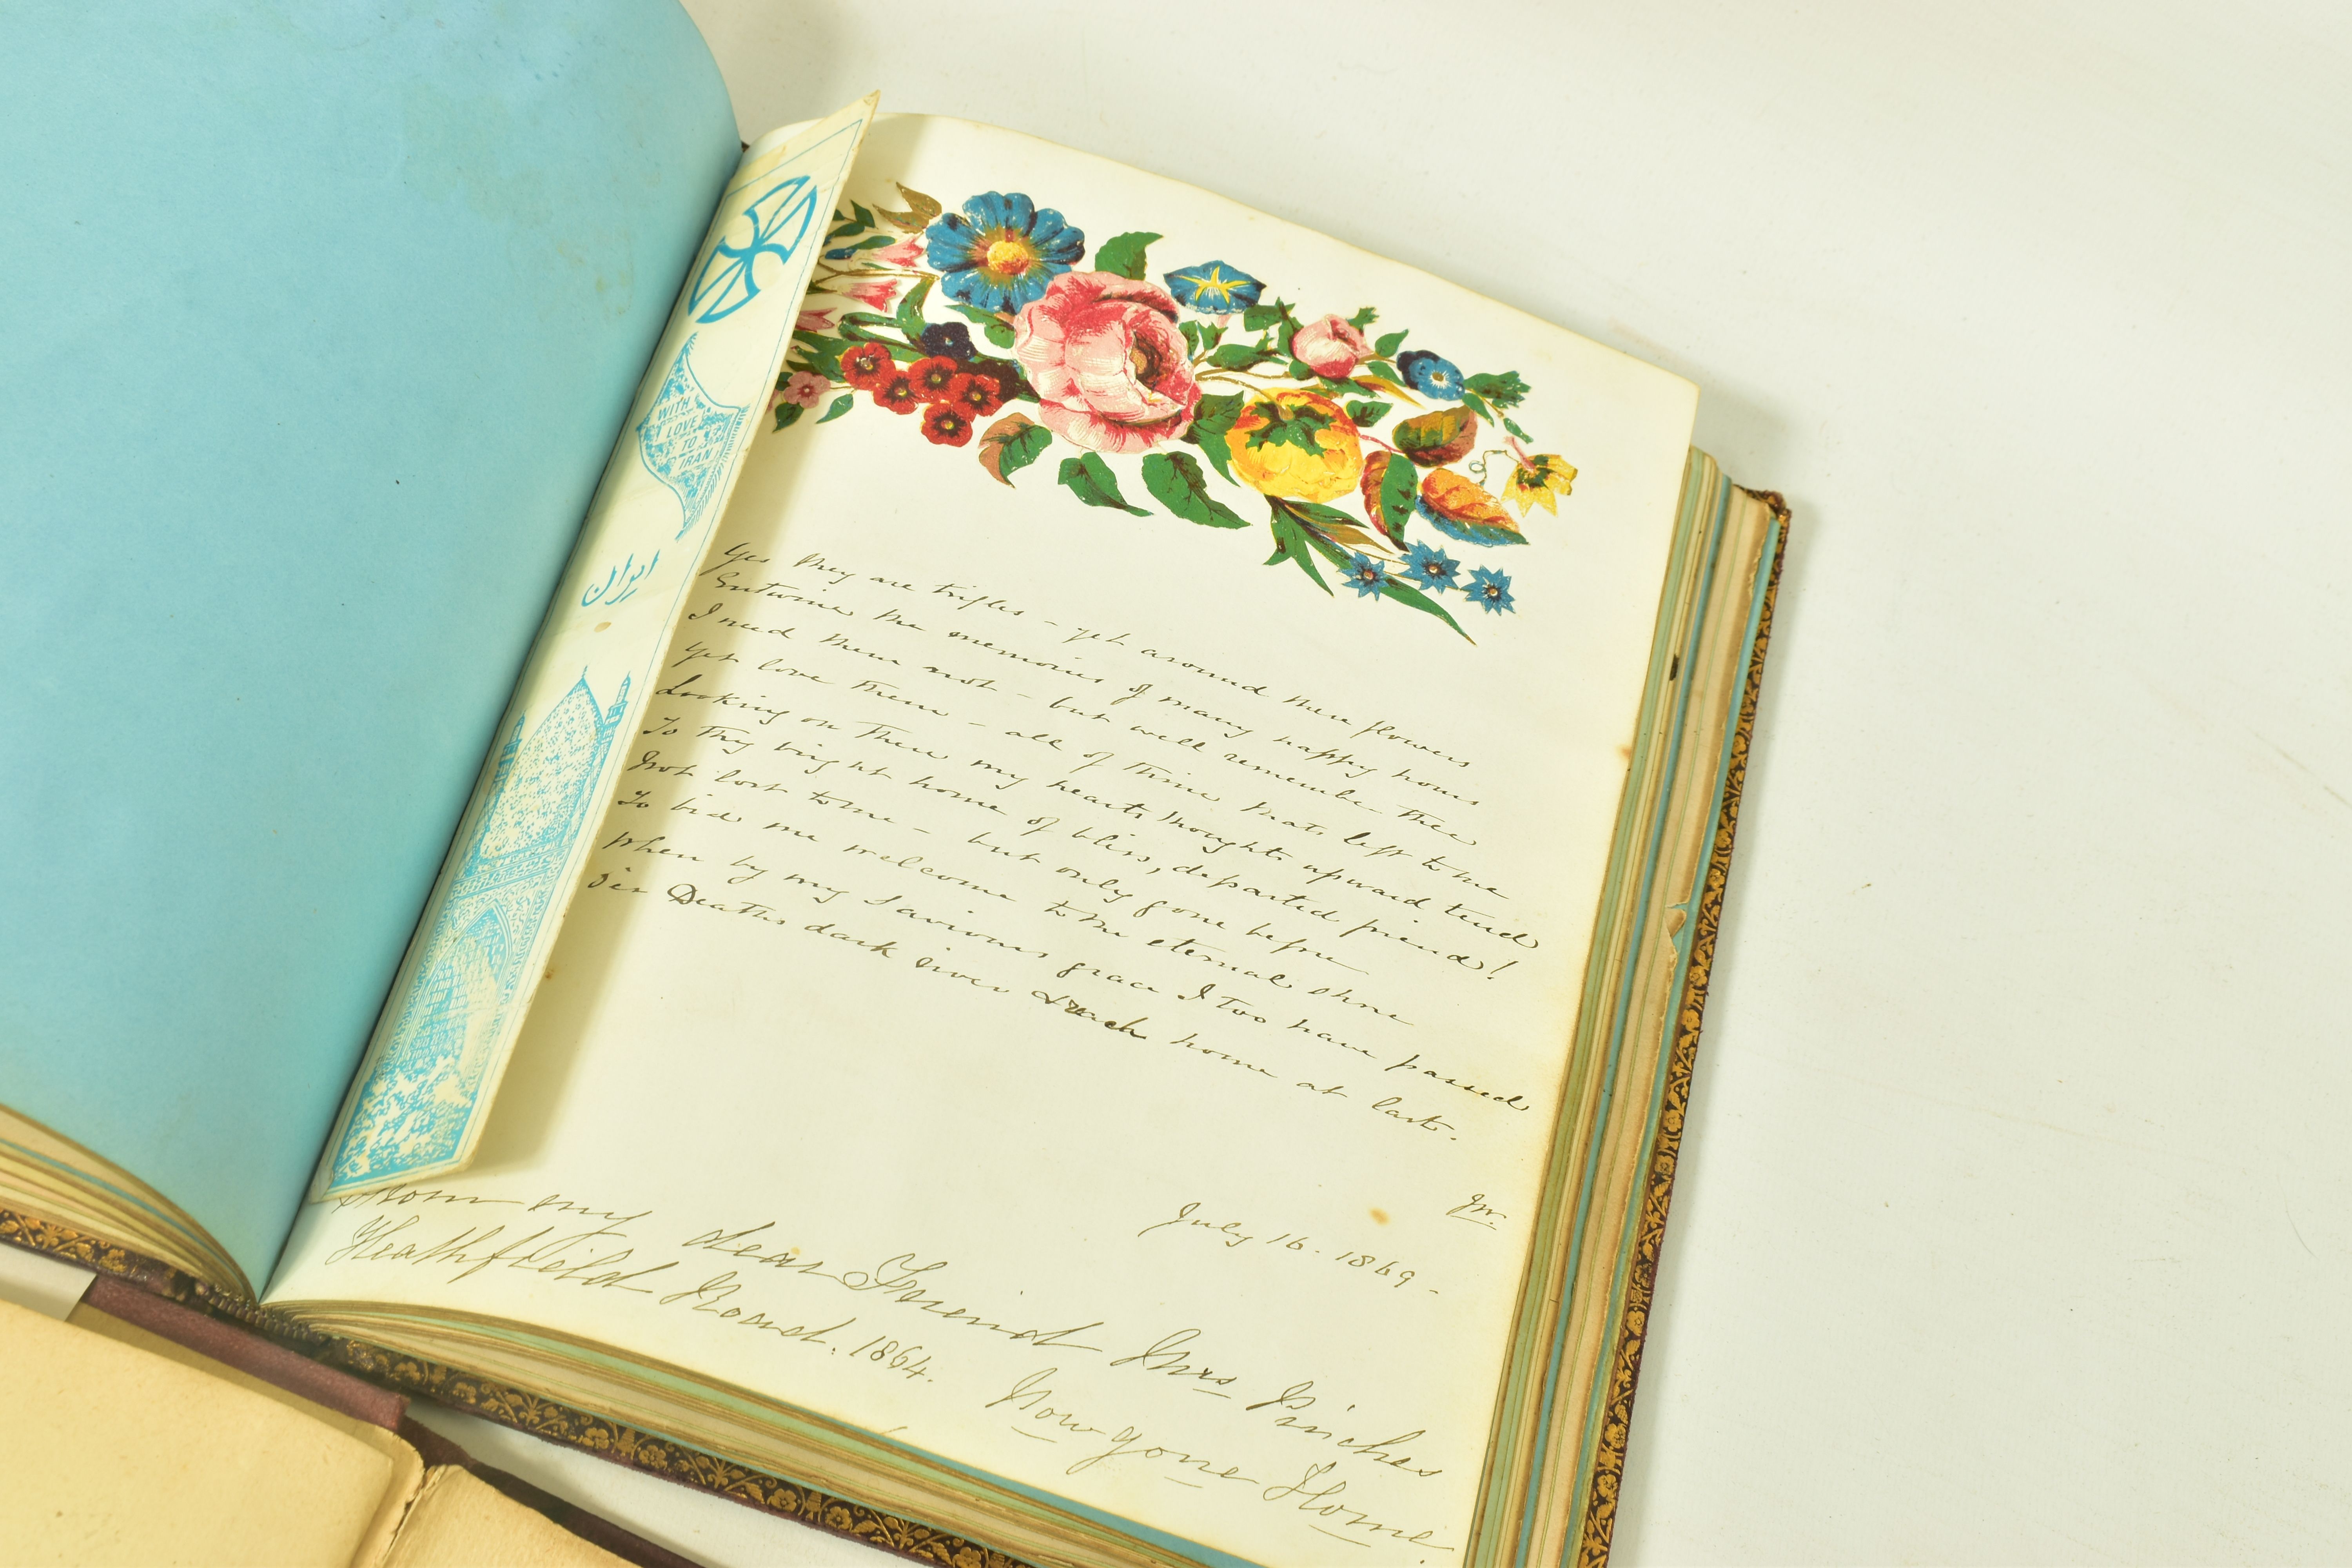 WITH
LOVE
TO
IRAN
ایران
Yes they are trifles - yet around them flowers
Entwine the memories of many happy hours
I need them not - but well remember thee
Yet love them - all of thine thats left to me
Looking on them my hearts thoughts upward tend
To thy bright home of bliss, departed friend!
Not lost to me - but only gone before
To bid me welcome to the eternal shore
When by my Saviours grace I too have passed
O'er Deaths dark river & reach home at last.
July 16. 1869.
From my dear Friend Mrs Pinches
Heathfield Road. 1864. Now gone Home.